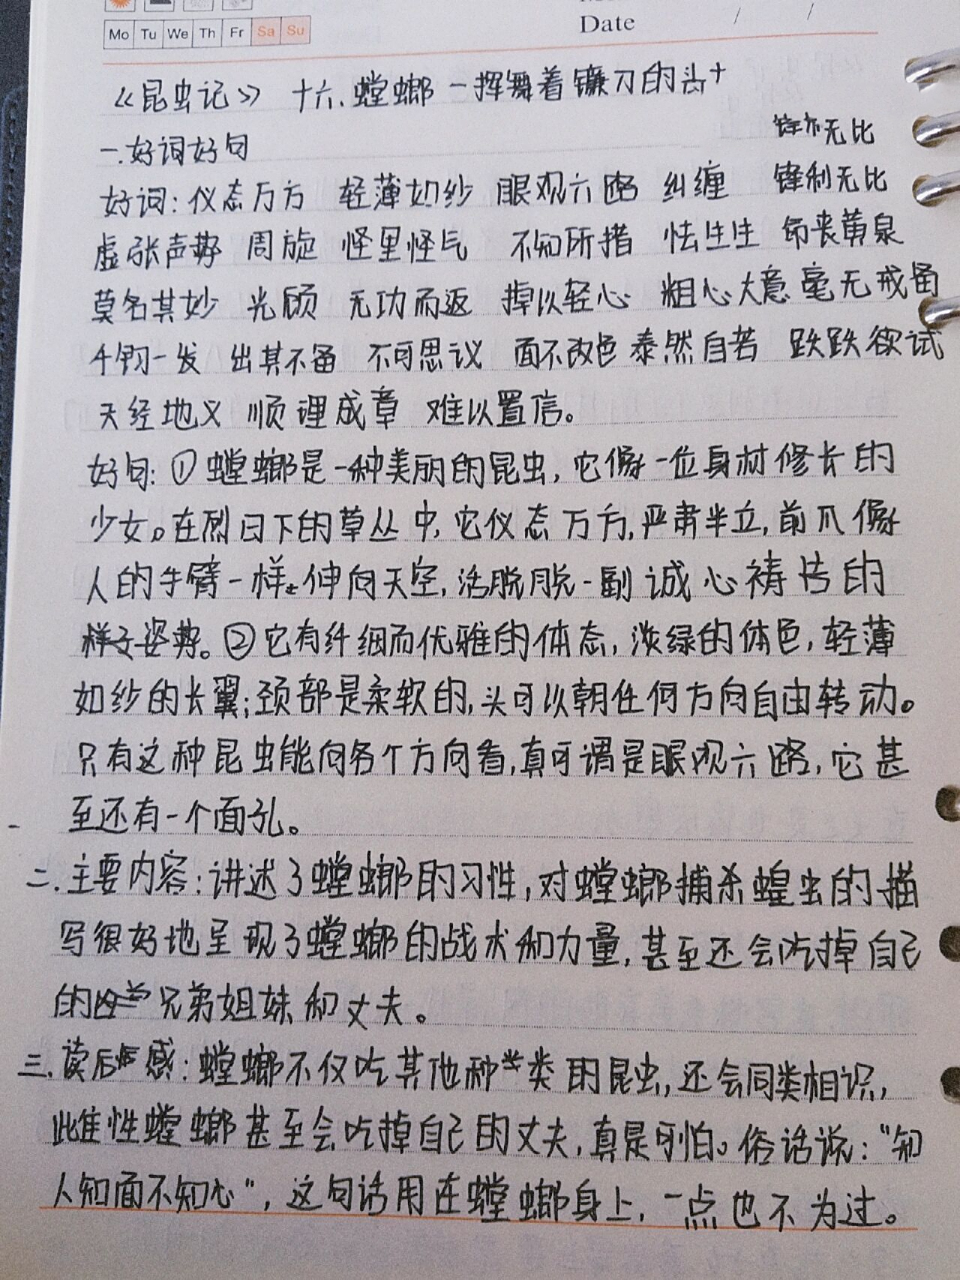 Mo Tu We Th Fr Sa Su
Date / /
《昆虫记》 十六.螳螂-挥舞着镰刀的头
一.好词好句
无比
好词:仪态万方 轻薄如纱 眼观六路 纠缠 锋利无比
虚张声势 周旋 怪里怪气 不知所措 怯生生 命丧黄泉
莫名其妙 光顾 无功而返 掉以轻心 粗心大意 毫无戒备
千钧一发 出其不备 不可思议 面不改色 泰然自若 跃跃欲试
天经地义 顺理成章 难以置信。
好句:①螳螂是一种美丽的昆虫,它像一位身材修长的
少女。在烈日下的草丛中,它仪态万方,严肃半立,前爪像
人的手臂一样伸向天空,活脱脱一副诚心祷告的
姿势。②它有纤细而优雅的体态,淡绿的体色,轻薄
如纱的长翼;颈部是柔软的,头可以朝任何方向自由转动。
只有这种昆虫能向各个方向看,真可谓是眼观六路,它甚
至还有一个面孔。
二.主要内容:讲述了螳螂的习性,对螳螂捕杀蝗虫的描
写很好地呈现了螳螂的战术和力量,甚至还会吃掉自己
的兄弟姐妹和丈夫。
三.读后感:螳螂不仅吃其他种类的昆虫,还会同类相识,
雌性螳螂甚至会吃掉自己的丈夫,真是可怕。俗话说:“知
人知面不知心”,这句话用在螳螂身上,一点也不为过。